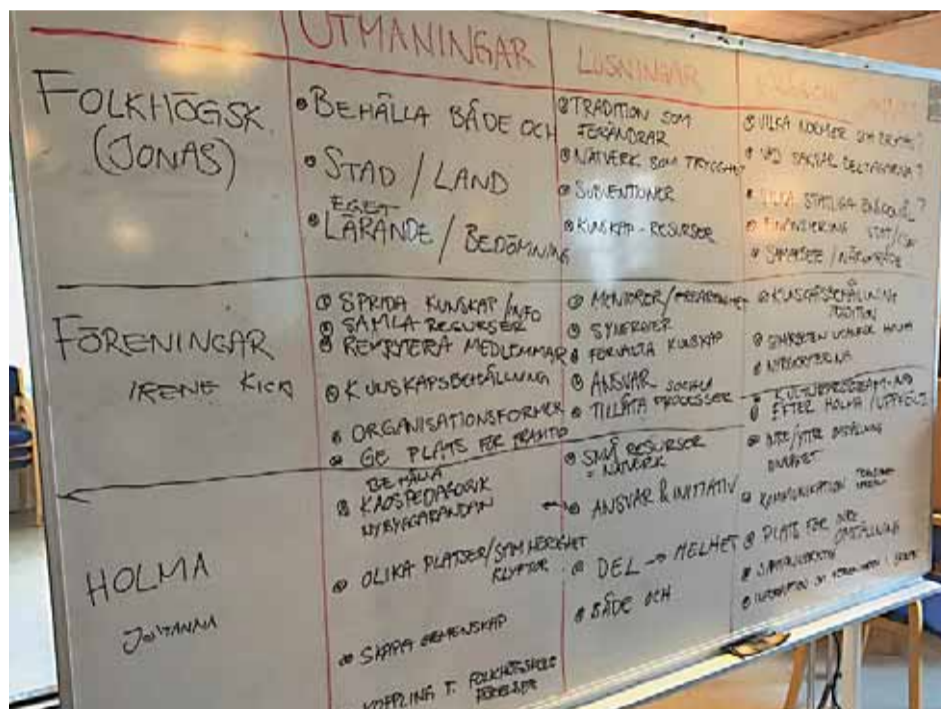 UTMANINGAR
LÖSNINGAR
FOLKHÖGSK.
(JONAS)
• BEHÅLLA BÅDE OCH
• STAD / LAND
EGET
• LÄRANDE / BEDÖMNING
• TRADITION SOM
FÖRÄNDRAR
• NÄTVERK SOM TRYGGHET
• SUBVENTIONER
• KUNSKAP - RESURSER
• VILKA NORMER SOM
• VAD SAKNAR DELTAGARNA?
• VILKA STATLIGA
• FINANSIERING STAT/
• SAMARBETE /
FÖRENINGAR
IRENE KICKI
• SPRIDA KUNSKAP / INFO
• SAMLA RESURSER
• REKRYTERA MEDLEMMAR
• KUNSKAPSBEHÅLLNING
• ORGANISATIONSFORMER
• GE PLATS FÖR FRAMTID
• MENTORER /
• SYNERGIER
• FÖRVALTA KUNSKAP
• ANSVAR SOCIALA
• TILLÅTA PROCESSER
• KUNSKAPSBEHÅLLNING
HOLMA
• KULTURPROGRAM
EFTER HOLMA /
HOLMA
JOHANNA
BEHÅLLA
• KAOSPEDAGOGIK
NYBYGGARANDAN
• OLIKA PLATSER/SAMHÖRIGHET
KLYFTOR
• SKAPA GEMENSKAP
KOPPLING T. FOLKHÖGSKOLE
• SMÅ RESURSER
= NÄTVERK
• ANSVAR & INITIATIV
• DEL → HELHET
• BÅDE OCH
• INRE/YTTRE
• KOMMUNIKATION
• PLATS FÖR INRE
OMSTÄLLNING
• INFORMATION OM